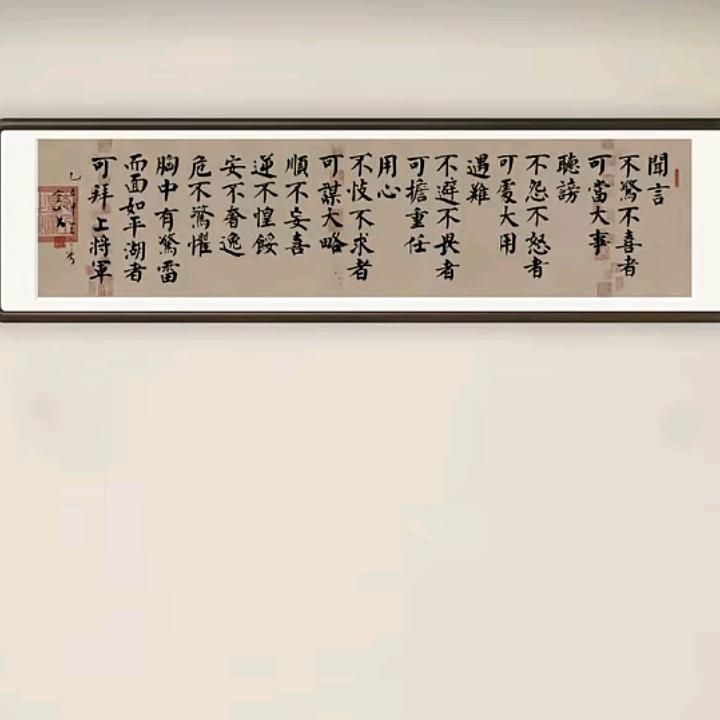 聞言
不驚不喜者
可當大事
聽謗
不怨不怒者
可處大用
遇難
不避不畏者
可擔重任
用心
不忮不求者
可謀大略
順不妄喜
逆不惶餒
安不奢逸
危不驚懼
胸中有驚雷
而面如平湖者
可拜上將軍